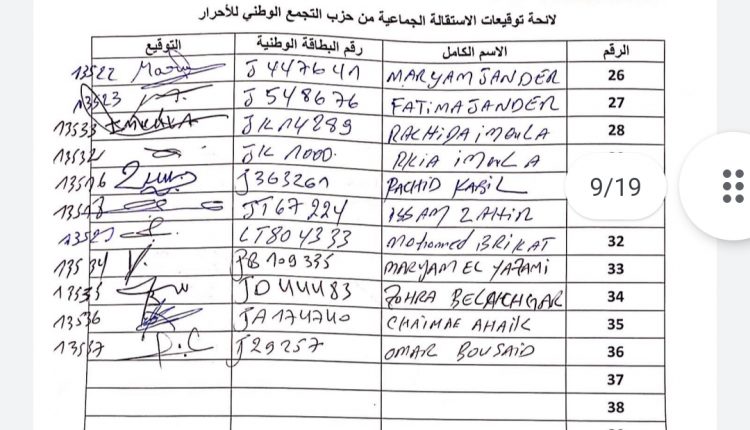 لائحة توقيعات الاستقالة الجماعية من حزب التجمع الوطني للأحرار
الرقم الاسم الكامل رقم البطاقة الوطنية التوقيع
26 MARYAM JANDER J447641 13522
27 FATIMA JANDER J548676 13523
28 RACHIDA iMOULA JK14289 13533
RKIA iMOULA JK 1000
RACHID KABIL J363261 13516
ISSAM ZAHIR JT67224
9/19
32 Mohamed BRIKAT LT804333
33 MARYAM EL YAZAMI JB109335 13534
34 ZOHRA BELAKHMAR JD44483 13535
35 CHAIMAE AHAIK JA174740 13536
36 OMAR BOUSAID J29257 13537
37
38